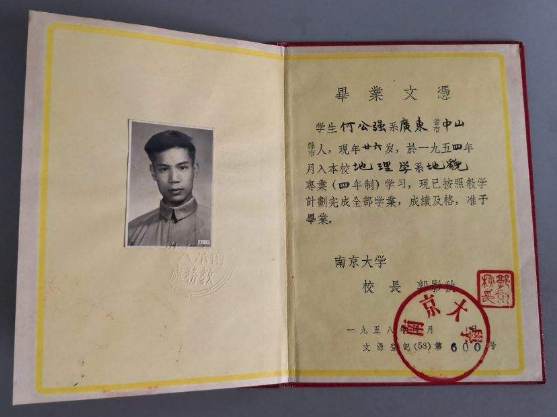 畢業文憑
学生何公强系廣東省市中山
縣市人，現年廿六岁，於一九五四年
月入本校地理学系地貌
專業（四年制）学习，現已按照教学
計劃完成全部学業，成績及格，准予
畢業。
南京大学
校長 郭影秋
一九五八年 月
文憑登記(58)第600号
南京大學